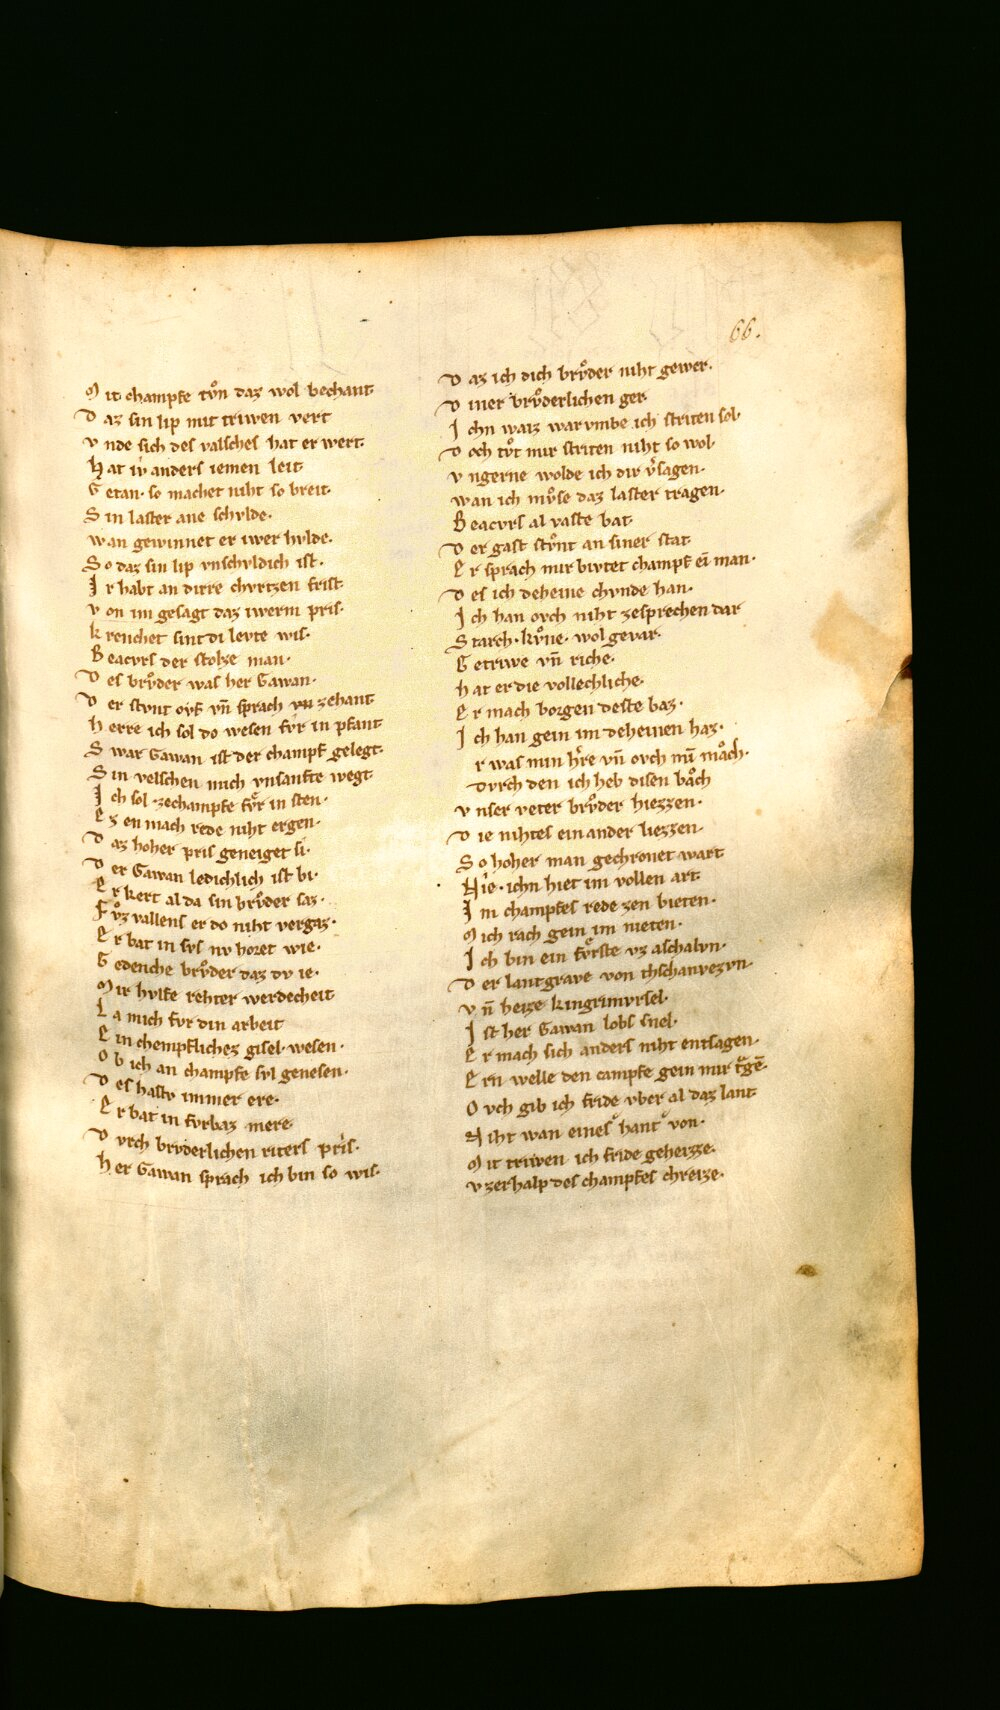 66.
Mit champfe tvͦn daz wol bechant
Daz sin lip mit triwen vert
Vnde sich des valsches hat er wert.
Hat iv anders iemen leit
Getan· so machet niht so breit·
Sin laster ane schvlde·
wan gewinnet er iwer hvlde·
So daz sin lip vnschvldich ist·
Ir habt an dirre chvrtzen frist
Von im gesagt daz iwerm pris·
Krenchet sint di levte wis·
Beacvrs der stolze man·
Des brvͦder was her Gawan·
Der stvnt ovf vn̄ sprach zehant
Herre ich sol do wesen fvr in pfant
Swar Gawan ist der champf gelegt·
Sin velschen mich vnsanfte wegt·
Ich sol zechampfe fvͤr in sten·
Ezen mach rede niht ergen·
Daz hoher pris geneiget si·
Der Gawan ledichlich ist bi·
Er kert al da sin brvͦder saz·
Fvͦz vallens er do niht vergaz·
Er bat in svs nv horet wie·
Gedenche brvͦder daz dv ie·
Mir hvlfe rehter werdecheit
La mich fvr din arbeit
Ein chempfliches gisel wesen·
Ob ich an champfe svl genesen·
Des hastv immer ere·
Er bat in fvrbaz mere·
Dvrch brvderlichen riters pris·
Her Gawan sprach ich bin so wis·
Daz ich dich brvͦder niht gewer·
Diner brvͦderlichen ger
Ichn waiz warvmbe ich striten sol·
Doch tvͦt mir striten niht so wol·
Vngerne wolde ich dir v̓sagen·
wan ich mvͦse daz laster tragen·
Beacvrs al vaste bat
Der gast stvͦnt an siner stat
Er sprach mir bivtet champf ein̄ man·
Des ich deheine chvnde han·
Ich han ovch niht zesprechen dar
Starch· kvͦne· wol gevar·
Getriwe vn̄ riche·
hat er die vollechliche·
Er mach borgen deste baz·
Ich han gein im deheinen haz·
r was min h̓re vn̄ ovch min̄ moͣch·
Dvrch den ich heb disen baͦch
Vnser veter brvͦder hiezzen·
Die nihtes ein ander liezzen·
So hoher man gechronet wart
Nie· ichn hiet im vollen art
Im champfes rede zen bieten·
Mich rach gein im nieten·
Ich bin ein fvͤrste vz aschalvn·
Der lantgrave von thschanvezvn·
Vn̄ heize kingrimvrsel·
Ist her Gawan lobs snel·
Er mach sich anders niht entsagen·
Ern welle den campfe gein mir
Ovch gib ich fride vber al daz lant
Niht wan eines hant von·
Mit triwen ich fride geheizze·
Vzerhalp des champfes chreize·